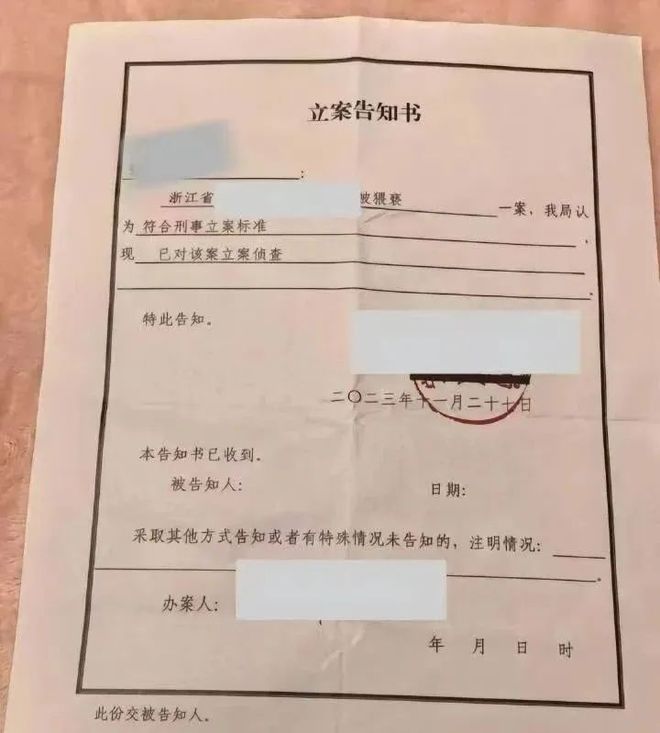 立案告知书
:
浙江省 被猥亵 一案，我局认
为 符合刑事立案标准 ，
现 已对该案立案侦查
。
特此告知。
二〇二三年十一月二十七日
本告知书已收到。
被告知人： 日期：
采取其他方式告知或者有特殊情况未告知的，注明情况：
。
办案人：
年 月 日 时
此份交被告知人。